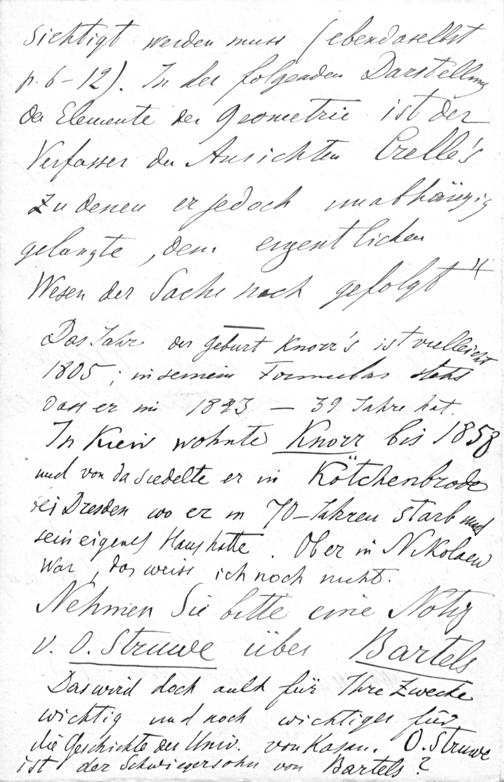 sichtigt werden muss (ebendaselbst
p. 6-12). In der folgenden Darstellung
der Elemente der Geometrie ist der
Verfasser den Ansichten Crelle's
zu denen er jedoch unabhängig
gelangte, dem eigentlichen
Wesen der Sache nach gefolgt"
Das Jahr der Geburt Knorr's ist vielleicht
1805; in seinem Formular steht
dass er in 1843 — 39 Jahre hat.
In Kiew wohnte Knorr bis 1858
und von da siedelte er in Kötchenbroda
bei Dresden wo er in 70-Jahren starb und
sein eigenes Haus hatte. Ob er in Nikolaew
war, das weiss ich noch nicht.
Nehmen Sie bitte eine Notiz
v. O. Struwe über Bartels
Das wird doch auch für Ihre Zwecke
wichtig und noch wichtiger für
die Geschichte der Univ. von Kasan. O. Struwe
ist der Schwiegersohn von Bartels?